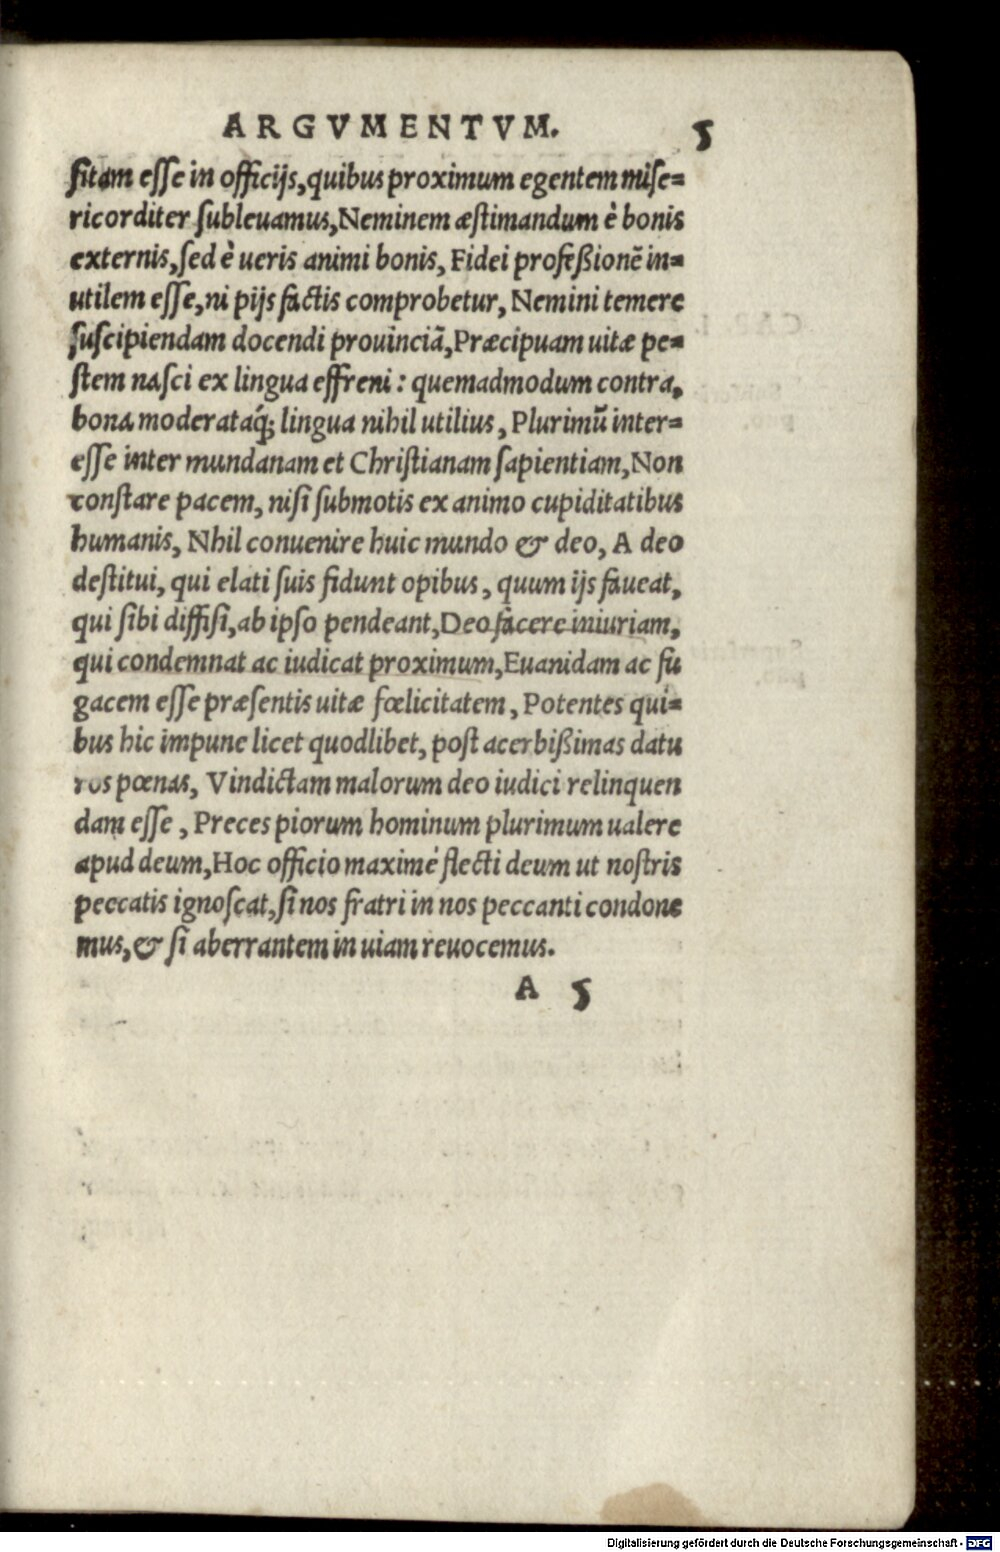 ARGVMENTVM. 5
sitam esse in officijs,quibus proximum egentem mise-
ricorditer subleuamus,Neminem æstimandum è bonis
externis,sed è ueris animi bonis, Fidei profeßionẽ in-
utilem esse,ni pijs factis comprobetur, Nemini temere
suscipiendam docendi prouinciã,Præcipuam uitæ pe-
stem nasci ex lingua effreni : quemadmodum contra,
bona moderataq́; lingua nihil utilius, Plurimũ inter-
esse inter mundanam et Christianam sapientiam,Non
constare pacem, nisi submotis ex animo cupiditatibus
humanis, Nhil conuenire huic mundo & deo, A deo
destitui, qui elati suis fidunt opibus, quum ijs faueat,
qui sibi diffisi,ab ipso pendeant,Deo facere iniuriam,
qui condemnat ac iudicat proximum,Euanidam ac fu
gacem esse præsentis uitæ fœlicitatem, Potentes qui-
bus hic impune licet quodlibet, post acerbißimas datu
ros pœnas, Vindictam malorum deo iudici relinquen
dam esse, Preces piorum hominum plurimum ualere
apud deum,Hoc officio maximè flecti deum ut nostris
peccatis ignoscat,si nos fratri in nos peccanti condone
mus,& si aberrantem in uiam reuocemus.
A 5
Digitalisierung gefördert durch die Deutsche Forschungsgemeinschaft - DFG